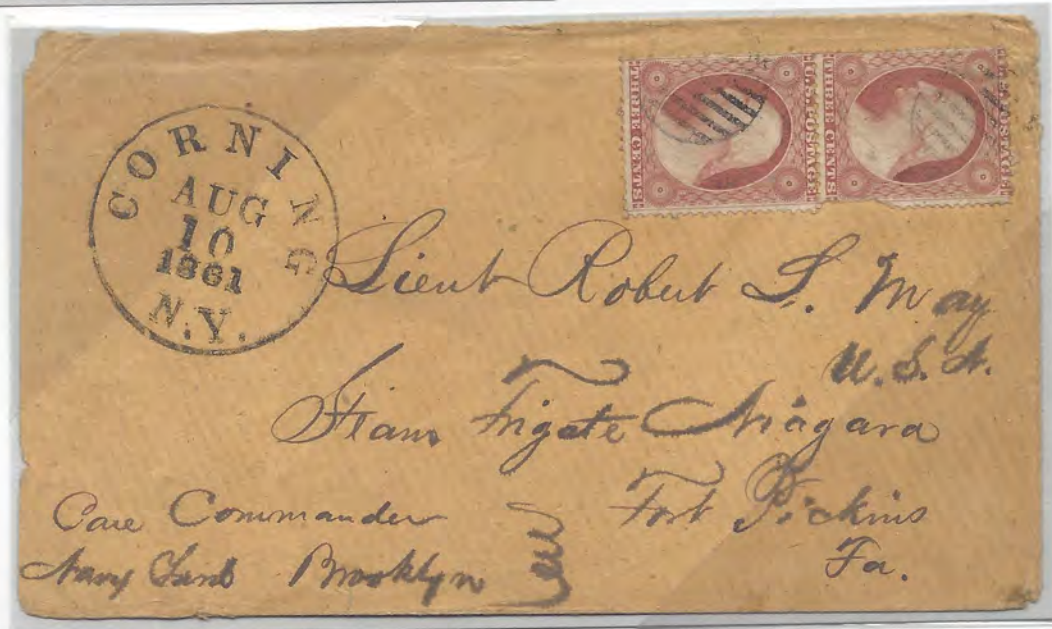 CORNING
AUG
10
1861
N.Y.
U.S. POSTAGE
THREE CENTS
U.S. POSTAGE
THREE CENTS
Lieut Robert L. May
U.S.N.
Steam Frigate Niagara
Fort Pickins
Fa.
Care Commander
Navy Yard Brooklyn